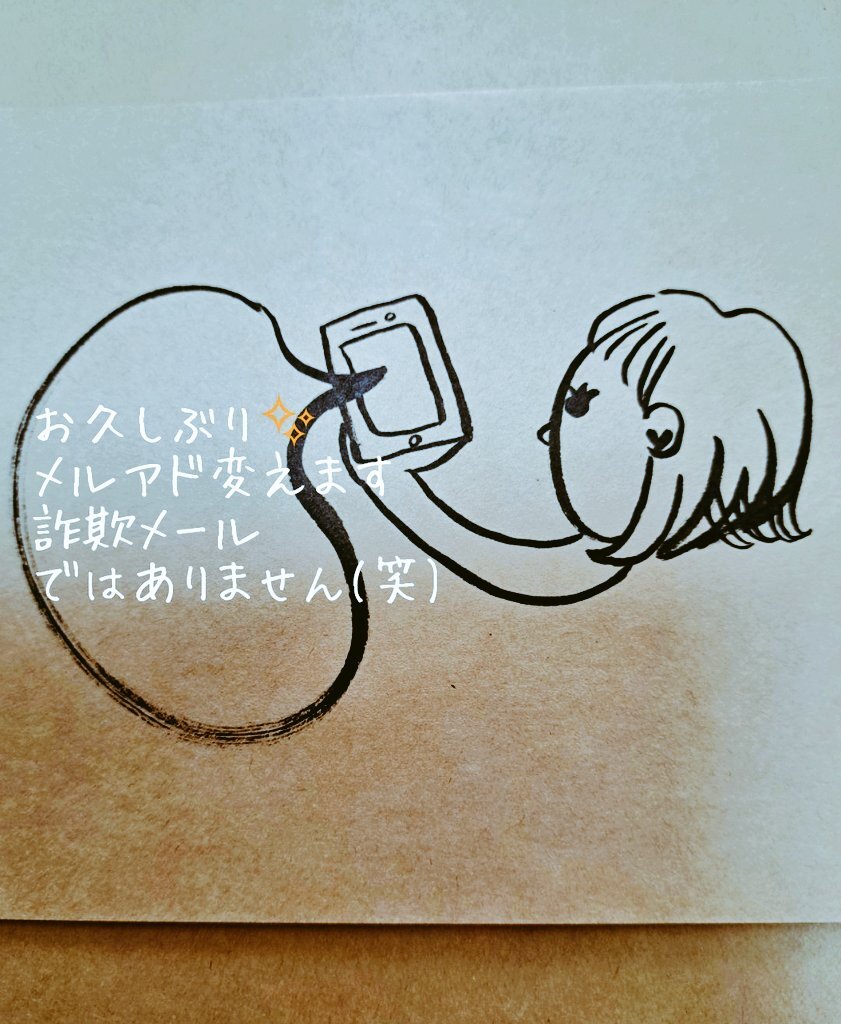 お久しぶり✨
メルアド変えます
詐欺メール
ではありません(笑)